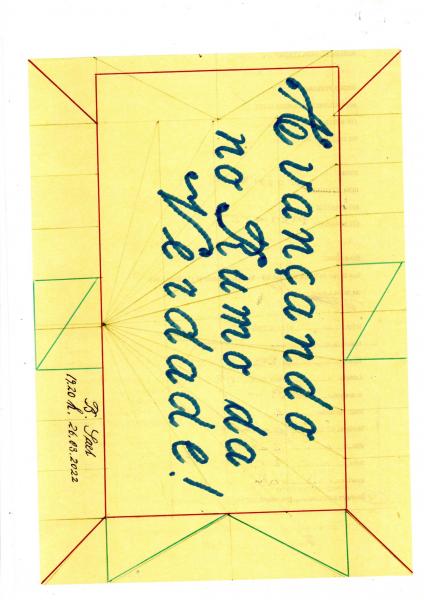 Avançando
no Rumo da
Verdade!
B.
19.20 h, 26.03.2022